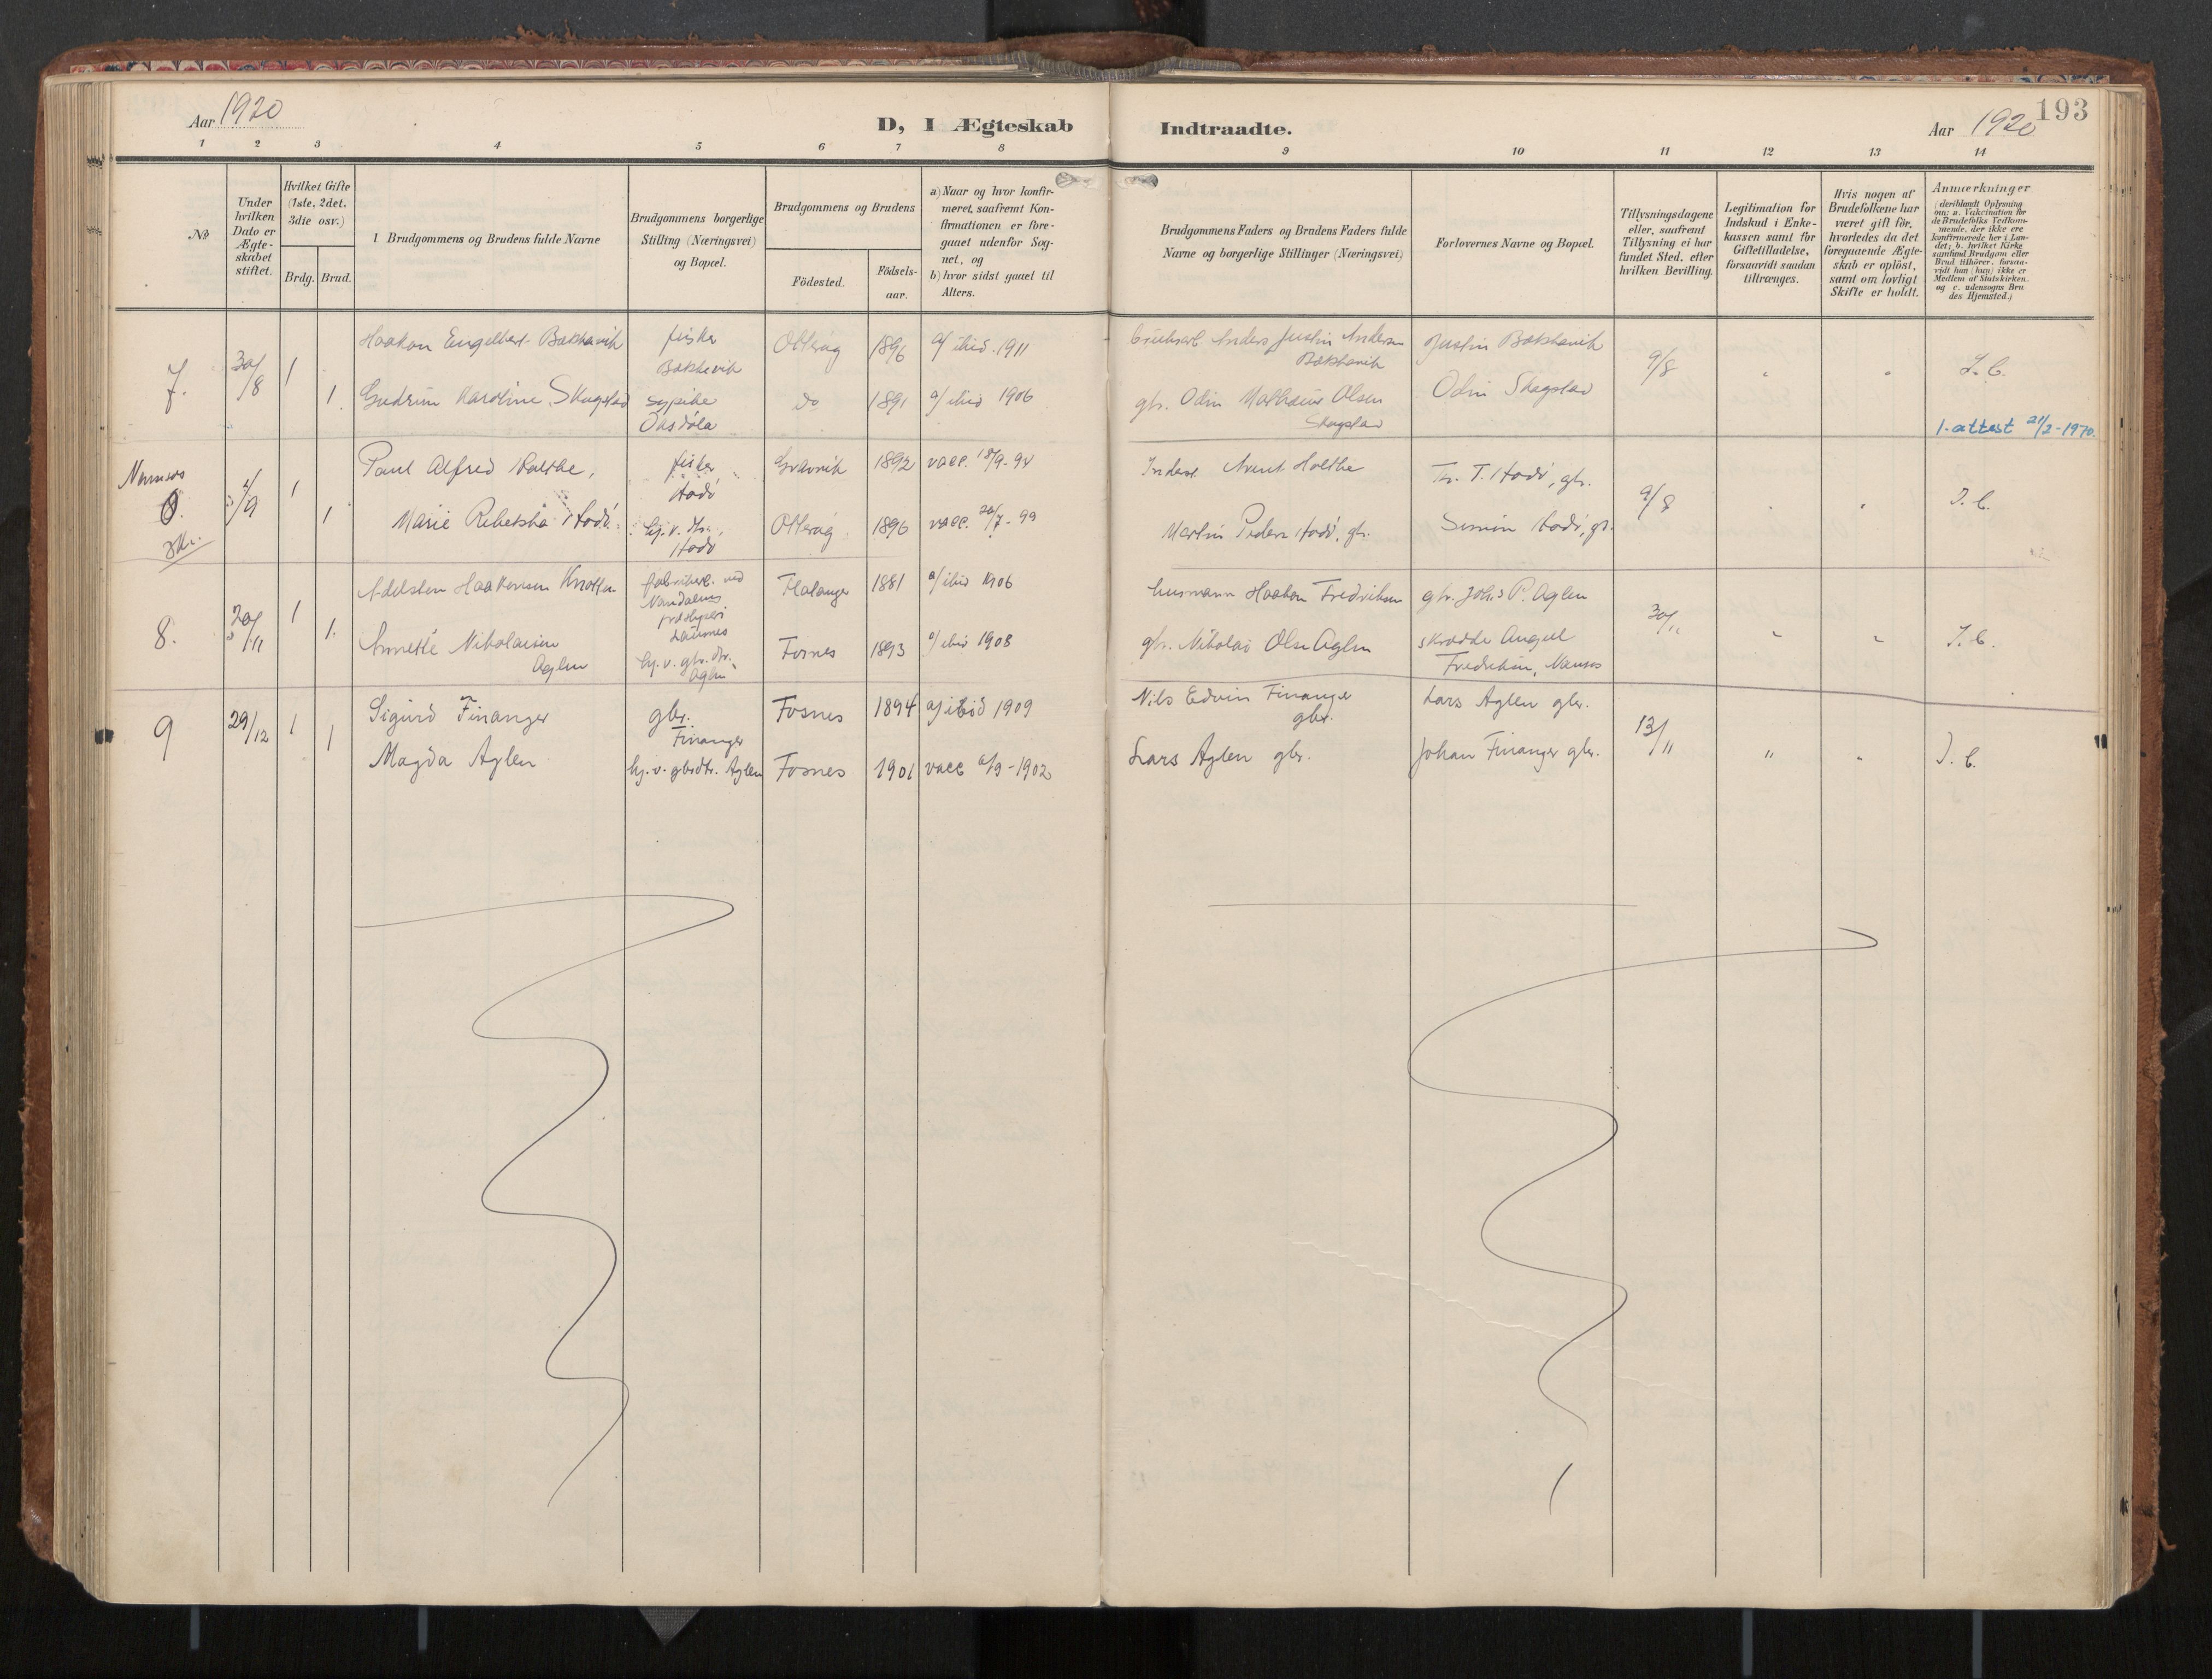 Aar 1920
D, I Ægteskab Indtraadte.
Aar 1920
193
1 2 3 4 5 6 7 8 9 10 11 12 13 14
No
Under hvilken Dato er Ægte-skabet stiftet.
Hvilket Gifte (1ste, 2det. 3die osv.)
Brdg. Brud.
1 Brudgommens og Brudens fulde Navne
Brudgommens borgerlige Stilling (Næringsvei) og Bopæl.
Brudgommens og Brudens
Födested.
Födsels-aar.
a) Naar og hvor konfir-meret, saafremt Kon-firmationen er fore-gaaet udenfor Sog-net, og
b) hvor sidst gaaet til Alters.
Brudgommens Faders og Brudens Faders fulde Navne og borgerlige Stillinger (Næringsvei)
Forlovernes Navne og Bopæl.
Tillysningsdagene eller, saafremt Tillysning ei har fundet Sted, efter hvilken Bevilling.
Legitimation for Indskud i Enke-kassen samt for Giftetilladelse, forsaavidt saadan tiltrænges.
Hvis nogen af Brudefolkene har været gift för, hvorledes da det foregaaende Ægte-skab er oplöst, samt om lovligt Skifte er holdt.
Anmærkninger (deriblandt Oplysning om; a. Vakcination for de Brudefolks Vedkom-mende, der ikke ere konfirmerede her i Lan-det; b. hvilket Kirke samfund Brudgom eller Brud tilhörer, forsaa-vidt han (hun) ikke er Medlem af Statskirken. og c. udensogns Bru des Hjemsted.)
7. 30/8 1 Haakon Engelbert Bakkavik fisker Otterøy 1896 a/ ibid. 1911 Anders Justin Andersen Justin Bakkavik 9/8 " " I. C.
Bakkavik
1 Gudrun Karoline Skogstad sypike do 1891 a/ ibid 1906 gbr. Odin Olsen Odin Skogstad
Skogstad
1. attest 21/2-1970.
Namsos
8. /9 1 Paul Alfred Holthe, fisker Gravvik 1892 vacc. 18/9-94 Holthe T. Hodø, gbr. 9/8 " " I. C.
Hodø
1 Marie Hodø. Otterøy 1896 vacc. 20/7-99 Martin Hodø, gbr. Simon Hodø, gbr.
Hodø
8. 20/11 1 Adelsten Haakonsen Knotten Flatanger 1881 a/ ibid 1906 husmann Haakon Fredriksen gbr. Johs P. Aglen 30/11 " " I. C.
1. Annette Nikolaisen hj. v. gbr. dtr. Fosnes 1893 a/ ibid 1908 gbr. Nikolai Olsen Aglen skrædder
Aglen Aglen Fredriksen, Namsos
9 29/12 1 Sigurd Finanger gbr. Fosnes 1894 a/ ibid 1909 Nils Edvin Finanger Lars Aglen gbr. 13/11 " " I. C.
Finanger gbr.
1 Magda Aglen hj. v. gbrdtr. Aglen Fosnes 1901 vacc 6/9-1902 Lars Aglen gbr. Johan Finanger gbr.